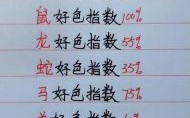 鼠好色指数100%
龙好色指数55%
蛇好色指数35%
马好色指数75%
好色指数